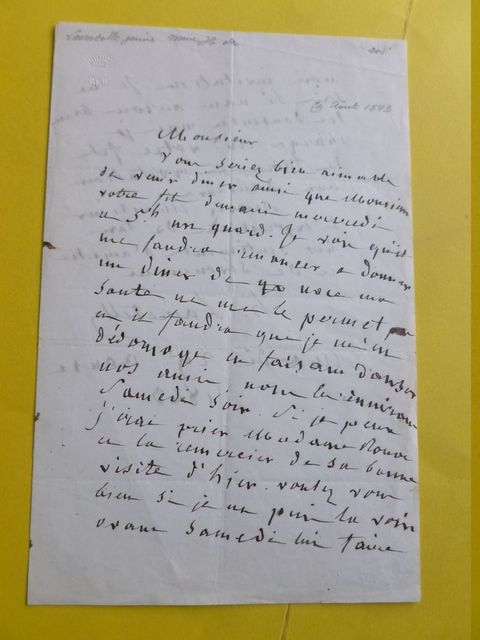 8 Août 1843
Monsieur
Vous seriez bien aimable
de venir diner ainsi que Monsieur
votre fils demain mercredi
a 5h un quart. Je vois qu'il
me faudra renoncer a donner
un diner de noce ma
santé ne me le permet pas
et il faudra que je m'en
dédomage en faisant danser
nos amis
Samedi soir. Si je peux
j'irai prier Madame
et la remercier de sa bonne
visite d'hier. voulez vous
bien si je ne puis la voir
avant Samedi lui faire